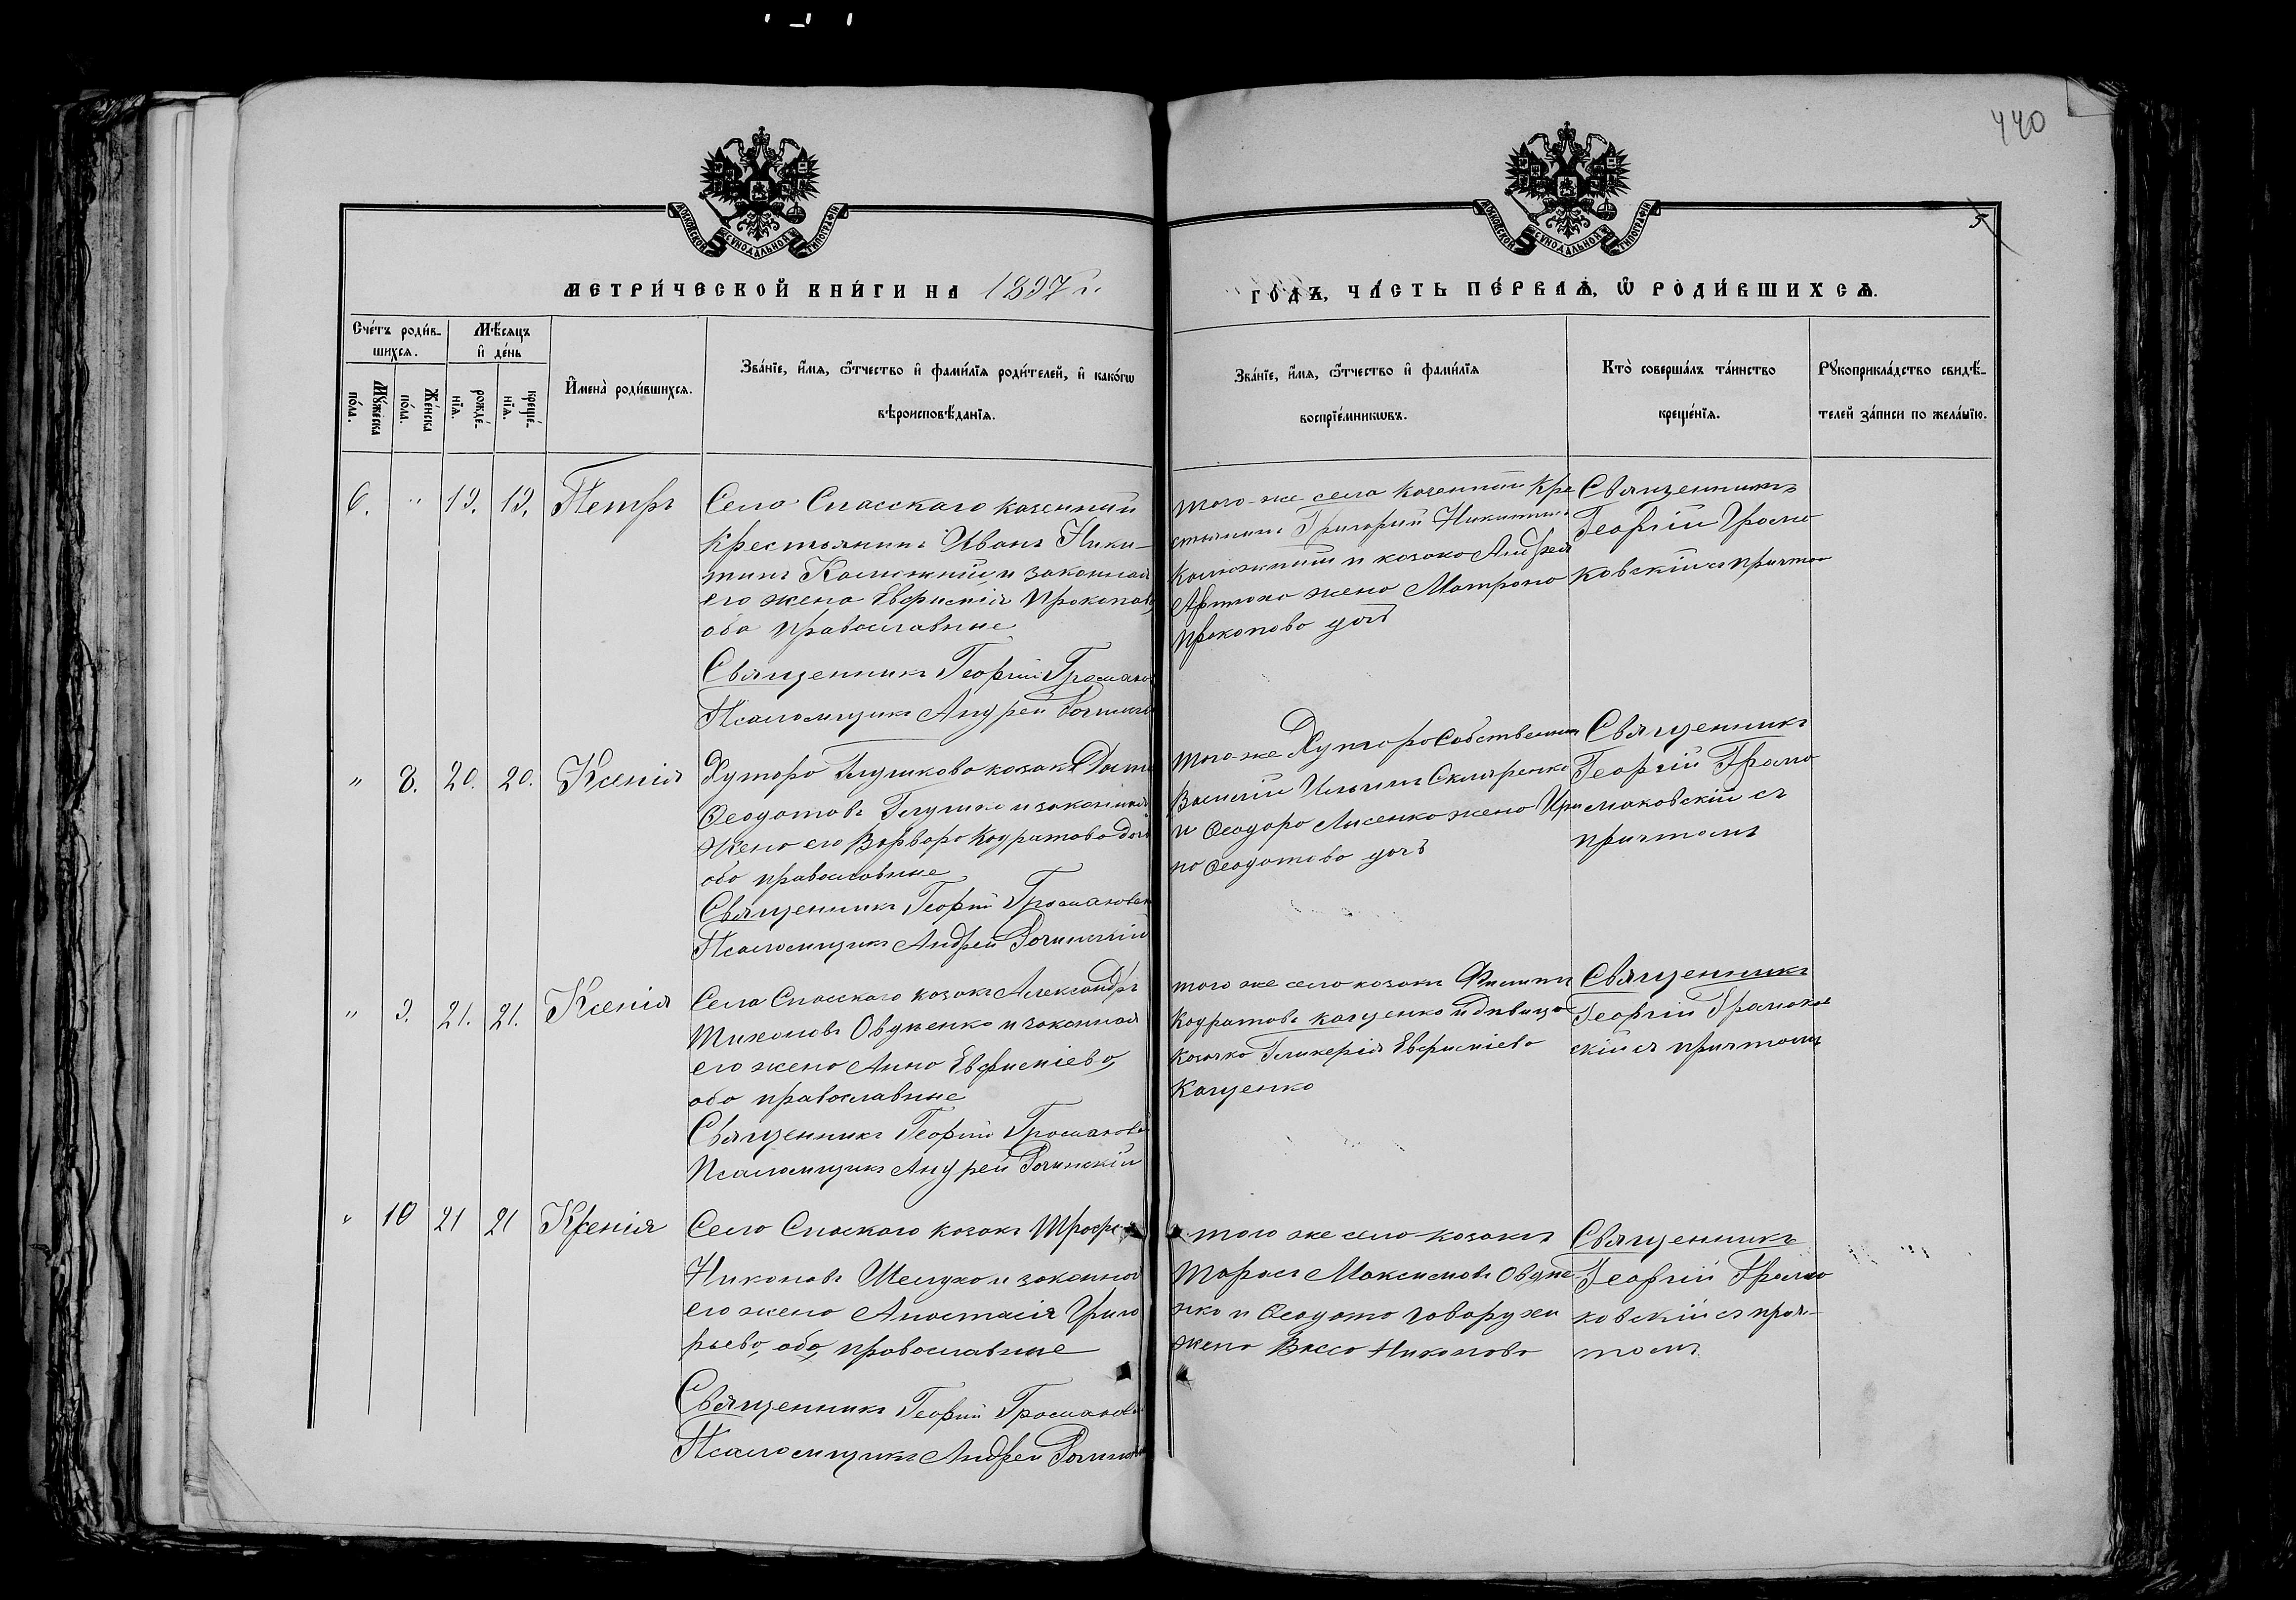 440
5
МОСКОВСКОЙ СѴНОДАЛЬНОЙ ТИПОГРАФІИ
МОСКОВСКОЙ СѴНОДАЛЬНОЙ ТИПОГРАФІИ
МЕТРИ́ЧЕСКОЙ КНИ́ГИ НА 1897 г.
ГО́ДЪ, ЧА́СТЬ ПЕ́РВАѦ, Ѡ҆ РОДИ́ВШИХСѦ.
Сче́тъ роди́в-
шихсѧ.
Мѣ́сяцъ
и҆ де́нь
Мꙋ́жеска
по́ла.
Же́нска
по́ла.
рожде́-
нїѧ.
креще́-
нїѧ.
И҆мена̀ роди́вшихсѧ.
Зва́нїе, и҆́мѧ, ѻ҆́тчество и҆ фами́лїѧ роди́телей, и҆ како́гѡ
вѣроисповѣ́данїѧ.
Зва́нїе, и҆́мѧ, ѻ҆́тчество и҆ фами́лїѧ
воспрїе́мникѡвъ.
Кто̀ соверша́лъ та́инство
креще́нїѧ.
Рꙋкоприкла́дство свидѣ́-
телей за́писи по жела́нїю.
6. " 19. 19. Петръ
Села Спасскаго казенный
крестьянинъ Иванъ Ники-
тинъ Калюжный и законная
его жена Евфимія Прокопова,
оба православные
Священникъ Георгій Громаков
Псаломщикъ Андрей
того-же села казенный кре
стьянинъ Григорій Никитинъ
Калюжный и козака Андрея
жена Матрона
Прокопова доч
Священникъ
Георгій Громо
ковскій съ причтом
" 8. 20. 20. Ксенія
Хутора Глушкова козакъ
Ѳеодотовъ Глушко и законная
жена его Варвара Кодратова доч
оба православные
Священникъ Георгій Громаковск
Псаломщикъ Андрей
того-же Хутора Собственник
Василій Ильинъ Скляренко
и Ѳеодора Лисенко жена Ири
на Ѳеодотова доч
Священникъ
Георгій Громо
маковскій съ
причтомъ
" 9. 21. 21. Ксенія
Села Спасскаго козакъ Александръ
Тихоновъ Овдіенко и законная
его жена Анна Евфиміева,
оба православные
Священникъ Георгій Громаков
Псаломщикъ Андрей
того же села козакъ Филиппъ
Кодратовъ Кащенко и дивица
козачка Гликерія Евфиміева
Кащенко
Священникъ
Георгій Громаков
скій съ причтомъ
" 10 21 21 Ксенія
Села Спаскаго козакъ Трофи
Никоновъ Шелудко и законная
его жена Анастасія Григо
рьева, оба, православные
Священникъ Георгій Громаков
Псаломщикъ Андрей
того же села козакъ
Тарасъ Максимовъ Овдіе-
нко и Ѳеодота
жена Васса Никонова
Священникъ
Георгій Громо
ковскій съ прич-
томъ